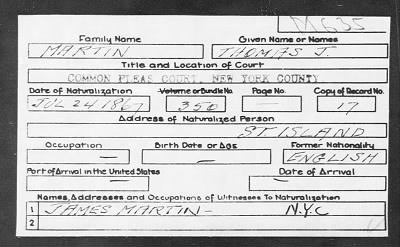 M635
Family Name Given Name or Names
MARTIN THOMAS J.
Title and Location of Court
COMMON PLEAS COURT, NEW YORK COUNTY.
Date of Naturalization Volume or Bundle No. Page No. Copy of Record No.
JUL 24 1867 350 — 17
Address of Naturalized Person
ST ISLAND
Occupation Birth Date or Age Former Nationality
— — ENGLISH
Port of Arrival in the United States Date of Arrival
— —
Names, Addresses and Occupations of Witnesses To Naturalization
1 JAMES MARTIN - N.Y.C
2